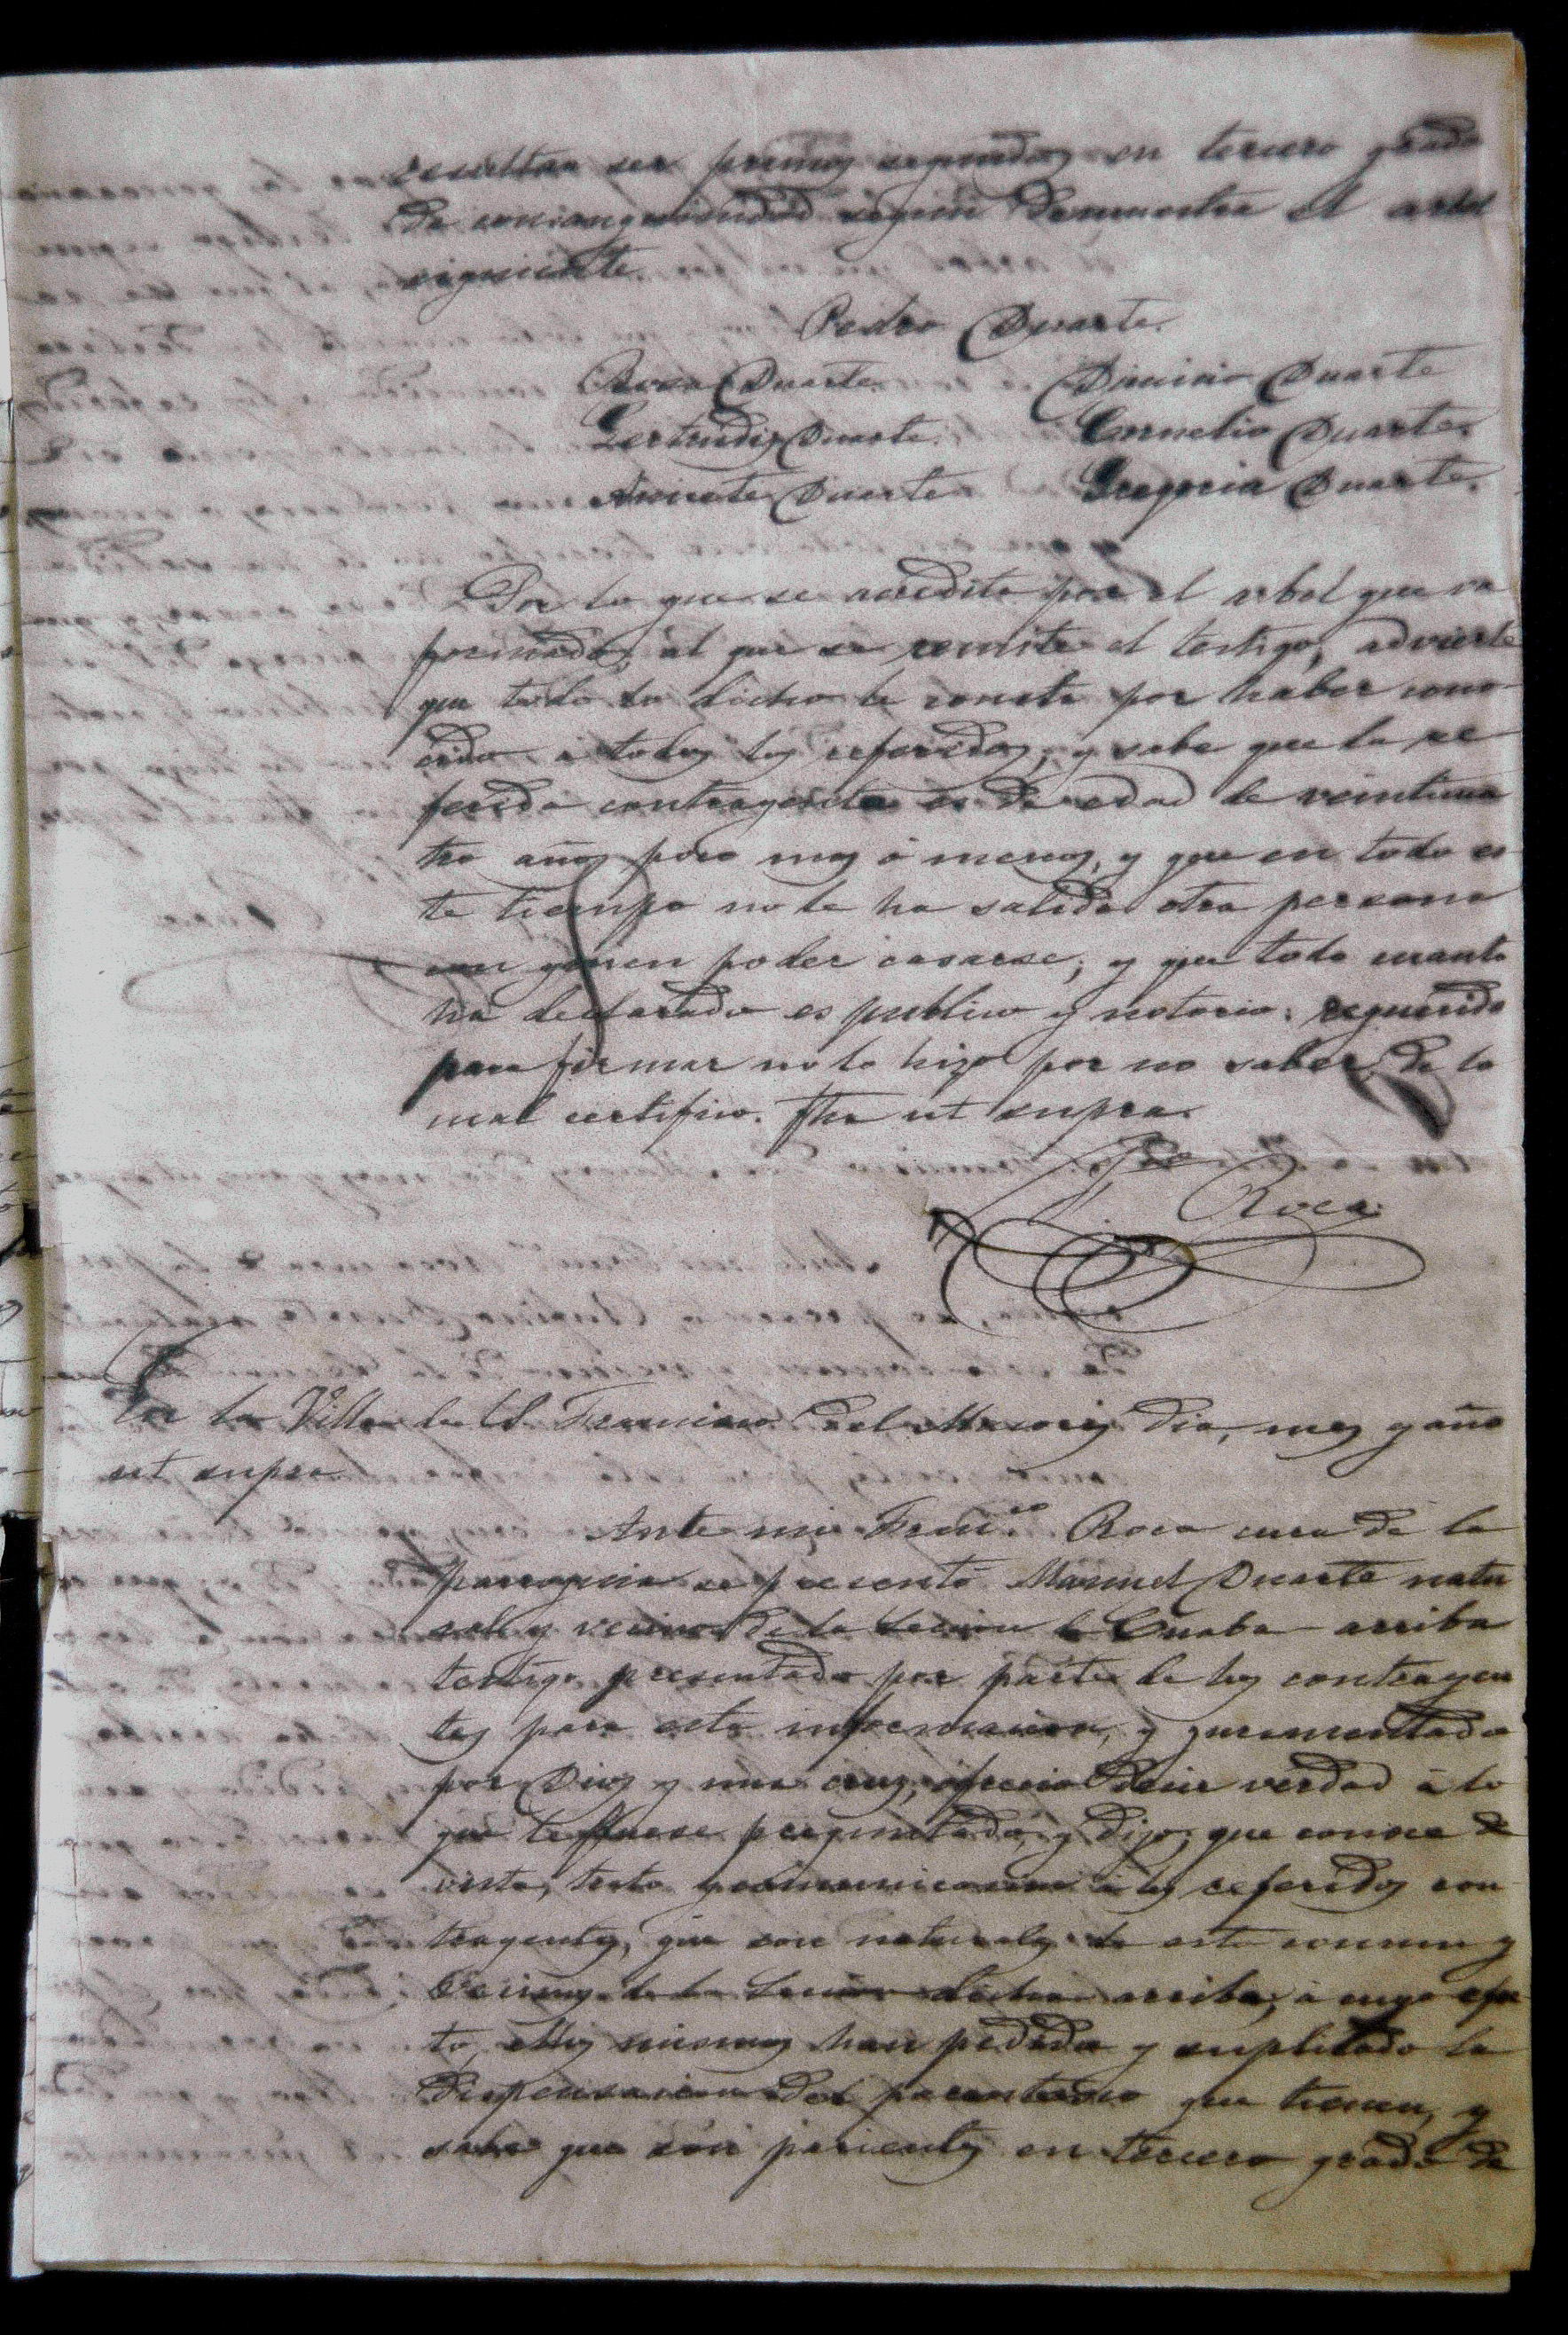 resultan ser primos segundos en tercero grado
de consanguinidad segun demuestra el arbol
siguiente.
Pedro Duarte.
Rosa Duarte. Dionicio Duarte
Gertrudis Duarte. Cornelio Duarte.
Aniceto Duarte Gregoria Duarte.
Por lo que se acredita por el arbol que va
formado, al que se remite el testigo, advierte
que todo lo dicho le consta por haber cono-
cido a todos los referidos, y sabe que la re
ferida contrayente es de edad de veinticua
tro años poco mas ó menos, y que en todo es
te tiempo no le ha salido otra persona
con quien poder casarse; y que todo cuanto
ha declarado es publico y notorio: requerido
para firmar no lo hizo por no saber, de lo
cual certifico. Fha ut supra.
Roca
En la Villa de S. Francisco del Macoris dia, mes y año
ut supra.
Ante mi Franco. Roca cura de la
parroquia se presentó Manuel Duarte natu
ral y vecino de la Seccion de Cuaba arriba
testigo presentado por parte de los contrayen
tes para esta informacion, y juramentado
por Dios y una cruz, ofreció decir verdad á lo
que le fuese preguntado, y dijo, que conoce de
vista, trato y comunicacion á los referidos con
trayentes, que son naturales de esta comun y
vecinos de la Seccion dicha arriba, á cuyo efec
to, ellos mismos han pedido y suplicado la
dispensacion del parentesco que tienen, y
sabe que son parientes en tercero grado de